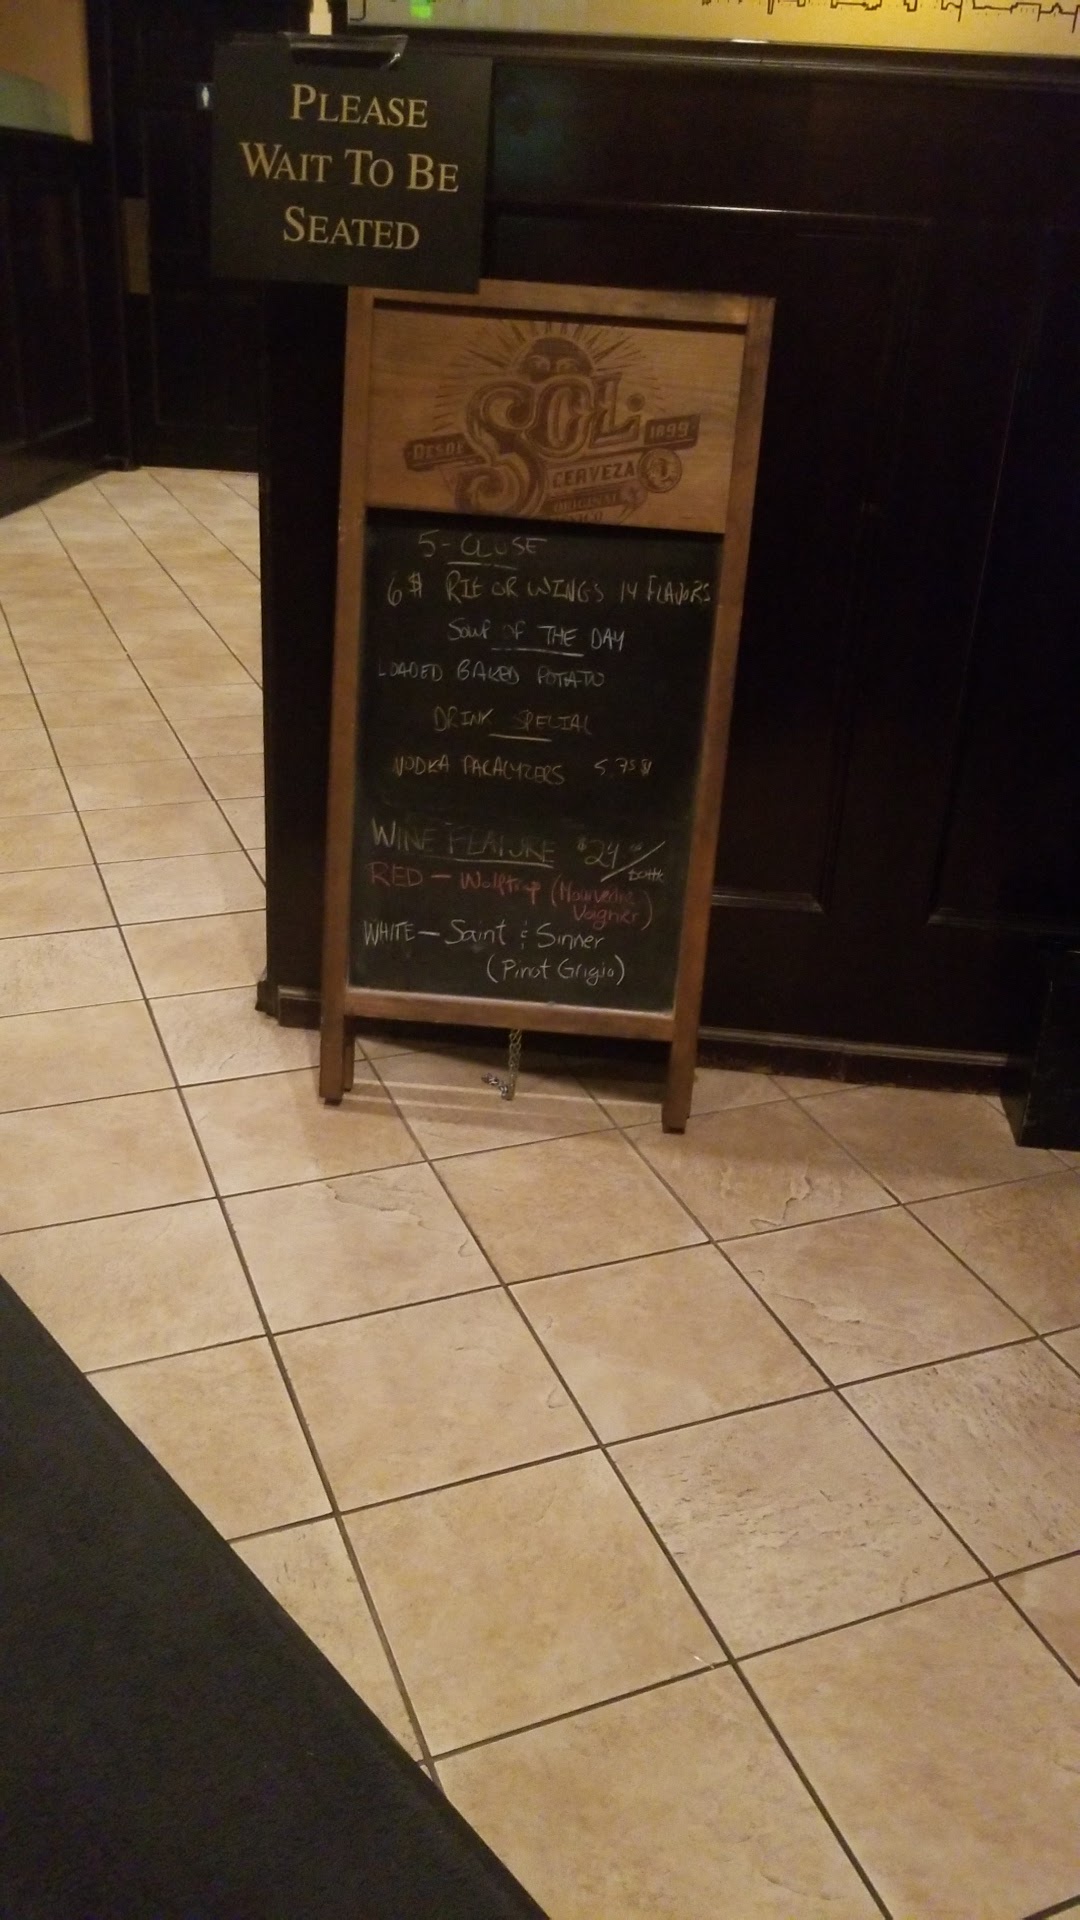 PLEASE
WAIT TO BE
SEATED
DESDE SOL 1899
CERVEZA
ORIGINAL
5-CLOSE
6$ RIB OR WINGS 14 FLAVORS
SOUP OF THE DAY
LOADED BAKED POTATO
DRINK SPECIAL
VODKA PARALYZERS 5.75$
WINE FEATURE $24.00/bottle
RED - Wolftrap (Mourvedre
Voignier)
WHITE - Saint & Sinner
(Pinot Grigio)